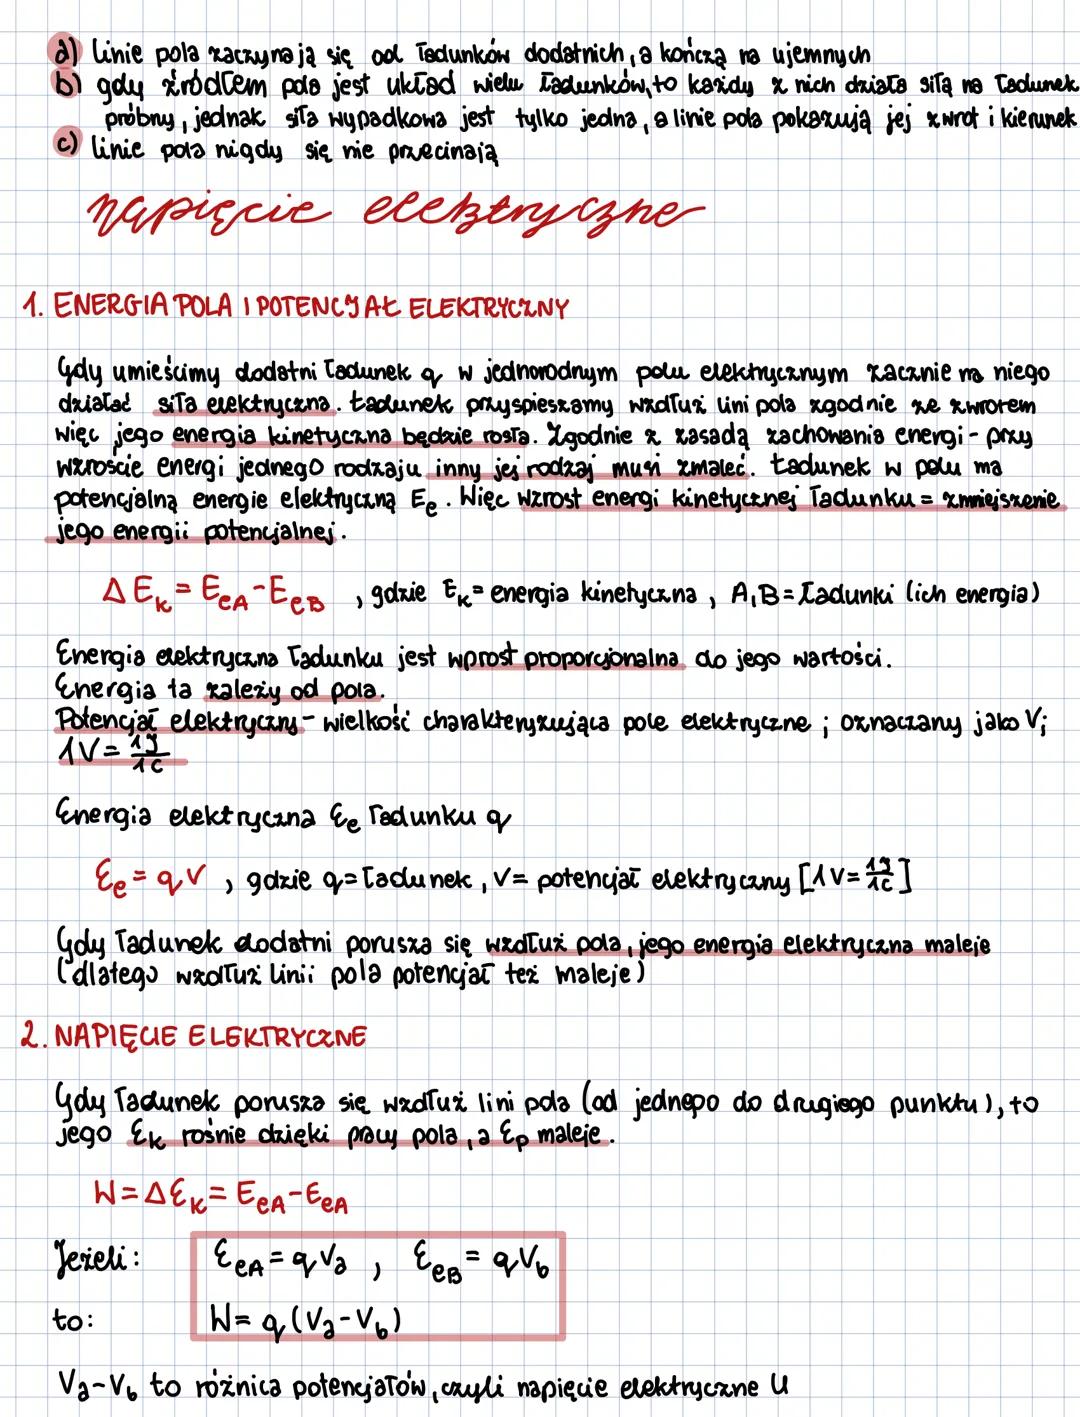 a) linie pola zaczynają się od ładunków dodatnich, a kończą na ujemnych
b) gdy źródłem pola jest układ wielu ładunków, to każdy z nich działa siłą na ładunek
próbny, jednak siła wypadkowa jest tylko jedna, a linie pola pokazują jej zwrot i kierunek
c) linie pola nigdy się nie przecinają
napięcie elektryczne
1. ENERGIA POLA I POTENCJAŁ ELEKTRYCZNY
Gdy umieścimy dodatni ładunek q w jednorodnym polu elektrycznym zacznie na niego
działać siła elektryczna. Ładunek przyspieszamy wzdłuż lini pola zgodnie ze zwrotem
więc jego energia kinetyczna będzie rosła. Zgodnie z zasadą zachowania energi - przy
wzroście energi jednego rodzaju inny jej rodzaj musi zmaleć. Ładunek w polu ma
potencjalną energie elektryczną Ee. Więc wzrost energi kinetycznej ładunku = zmniejszenie
jego energii potencjalnej.
ΔEk = EeA - EeB , gdzie Ek = energia kinetyczna, A,B = ładunki (ich energia)
Energia elektryczna ładunku jest wprost proporcjonalna do jego wartości.
Energia ta zależy od pola.
Potencjał elektryczny - wielkość charakteryzująca pole elektryczne ; oznaczany jako V;
1V = 1J/1C
Energia elektryczna Ee ładunku q
Ee = qV , gdzie q = ładunek, V = potencjał elektryczny [1V = 1J/1C]
Gdy ładunek dodatni porusza się wzdłuż pola, jego energia elektryczna maleje
(dlatego wzdłuż linii pola potencjał też maleje)
2. NAPIĘCIE ELEKTRYCZNE
Gdy ładunek porusza się wzdłuż lini pola (od jednego do drugiego punktu), to
jego Ek rośnie dzięki pracy pola, a Ep maleje.
W = ΔEk = EeA - EeA
Jeżeli: EeA = qVa , EeB = qVb
to: W = q(Va - Vb)
Va - Vb to różnica potencjałów, czyli napięcie elektryczne U